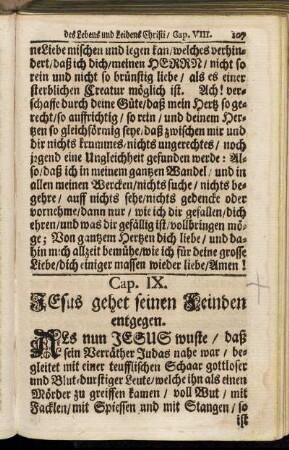 des Lebens und Leidens Christi / Cap. VIII. 207
ne Liebe mischen und legen kan / welches verhin-
dert / daß ich dich / meinen HERRN / nicht so
rein und nicht so brünstig liebe / als es einer
sterblichen Creatur möglich ist. Ach! ver-
schaffe durch deine Güte / daß mein Hertz so ge-
recht / so auffrichtig / so rein / und deinem Her-
tzen so gleichförmig seye / daß zwischen mir und
dir nichts krummes / nichts ungerechtes / noch
jrgend eine Ungleichheit gefunden werde: Al-
so / daß ich in meinem gantzen Wandel / und in
allen meinen Wercken / nichts suche / nichts be-
gehre / auff nichts sehe / nichts gedencke oder
vornehme / dann nur / wie ich dir gefallen / dich
ehren / und was dir gefällig ist / vollbringen mö-
ge; Von gantzem Hertzen dich liebe / und da-
hin mich allzeit bemühe / wie ich für deine grosse
Liebe / dich einiger massen wieder liebe / Amen!
Cap. IX.
JEsus gehet seinen Feinden
entgegen.
ALs nun JESUS wuste / daß
sein Verräther Judas nahe war / be-
gleitet mit einer teufflischen Schaar gottloser
und Blut-durstiger Leute / welche ihn als einen
Mörder zu greiffen kamen / voll Wut / mit
Facklen / mit Spiessen und mit Stangen / so
ist